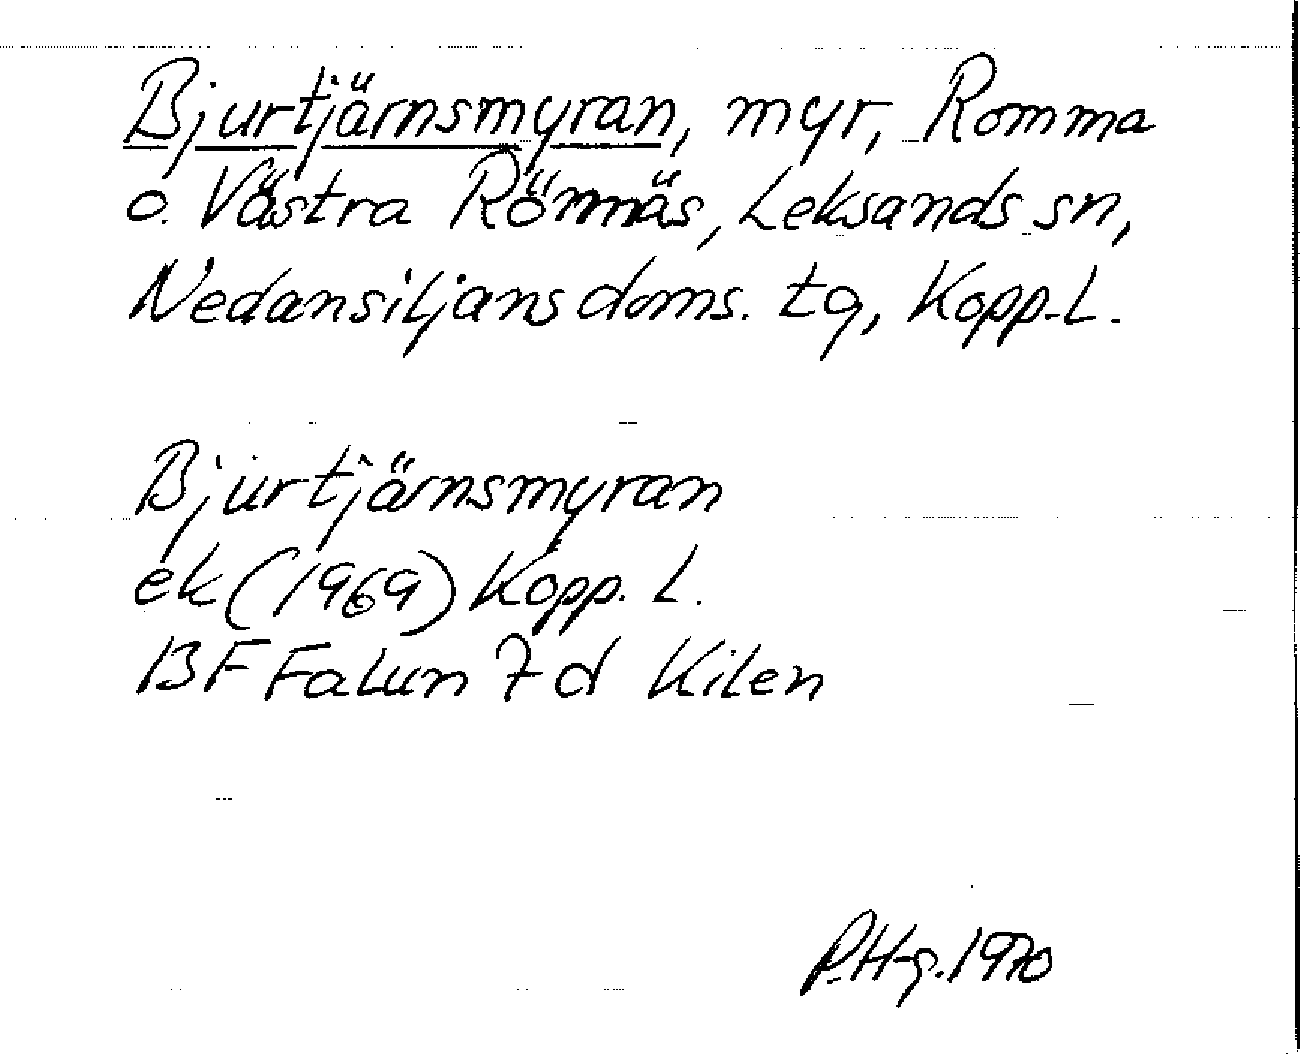 Bjurtjärnsmyran, myr, Romma
o. Västra Rönnäs, Leksands sn,
Nedansiljans doms. tg, Kopp.L.
Bjurtjärnsmyran
ek (1969) Kopp. L.
13F Falun 7d Kilen
P.H-g. 1970